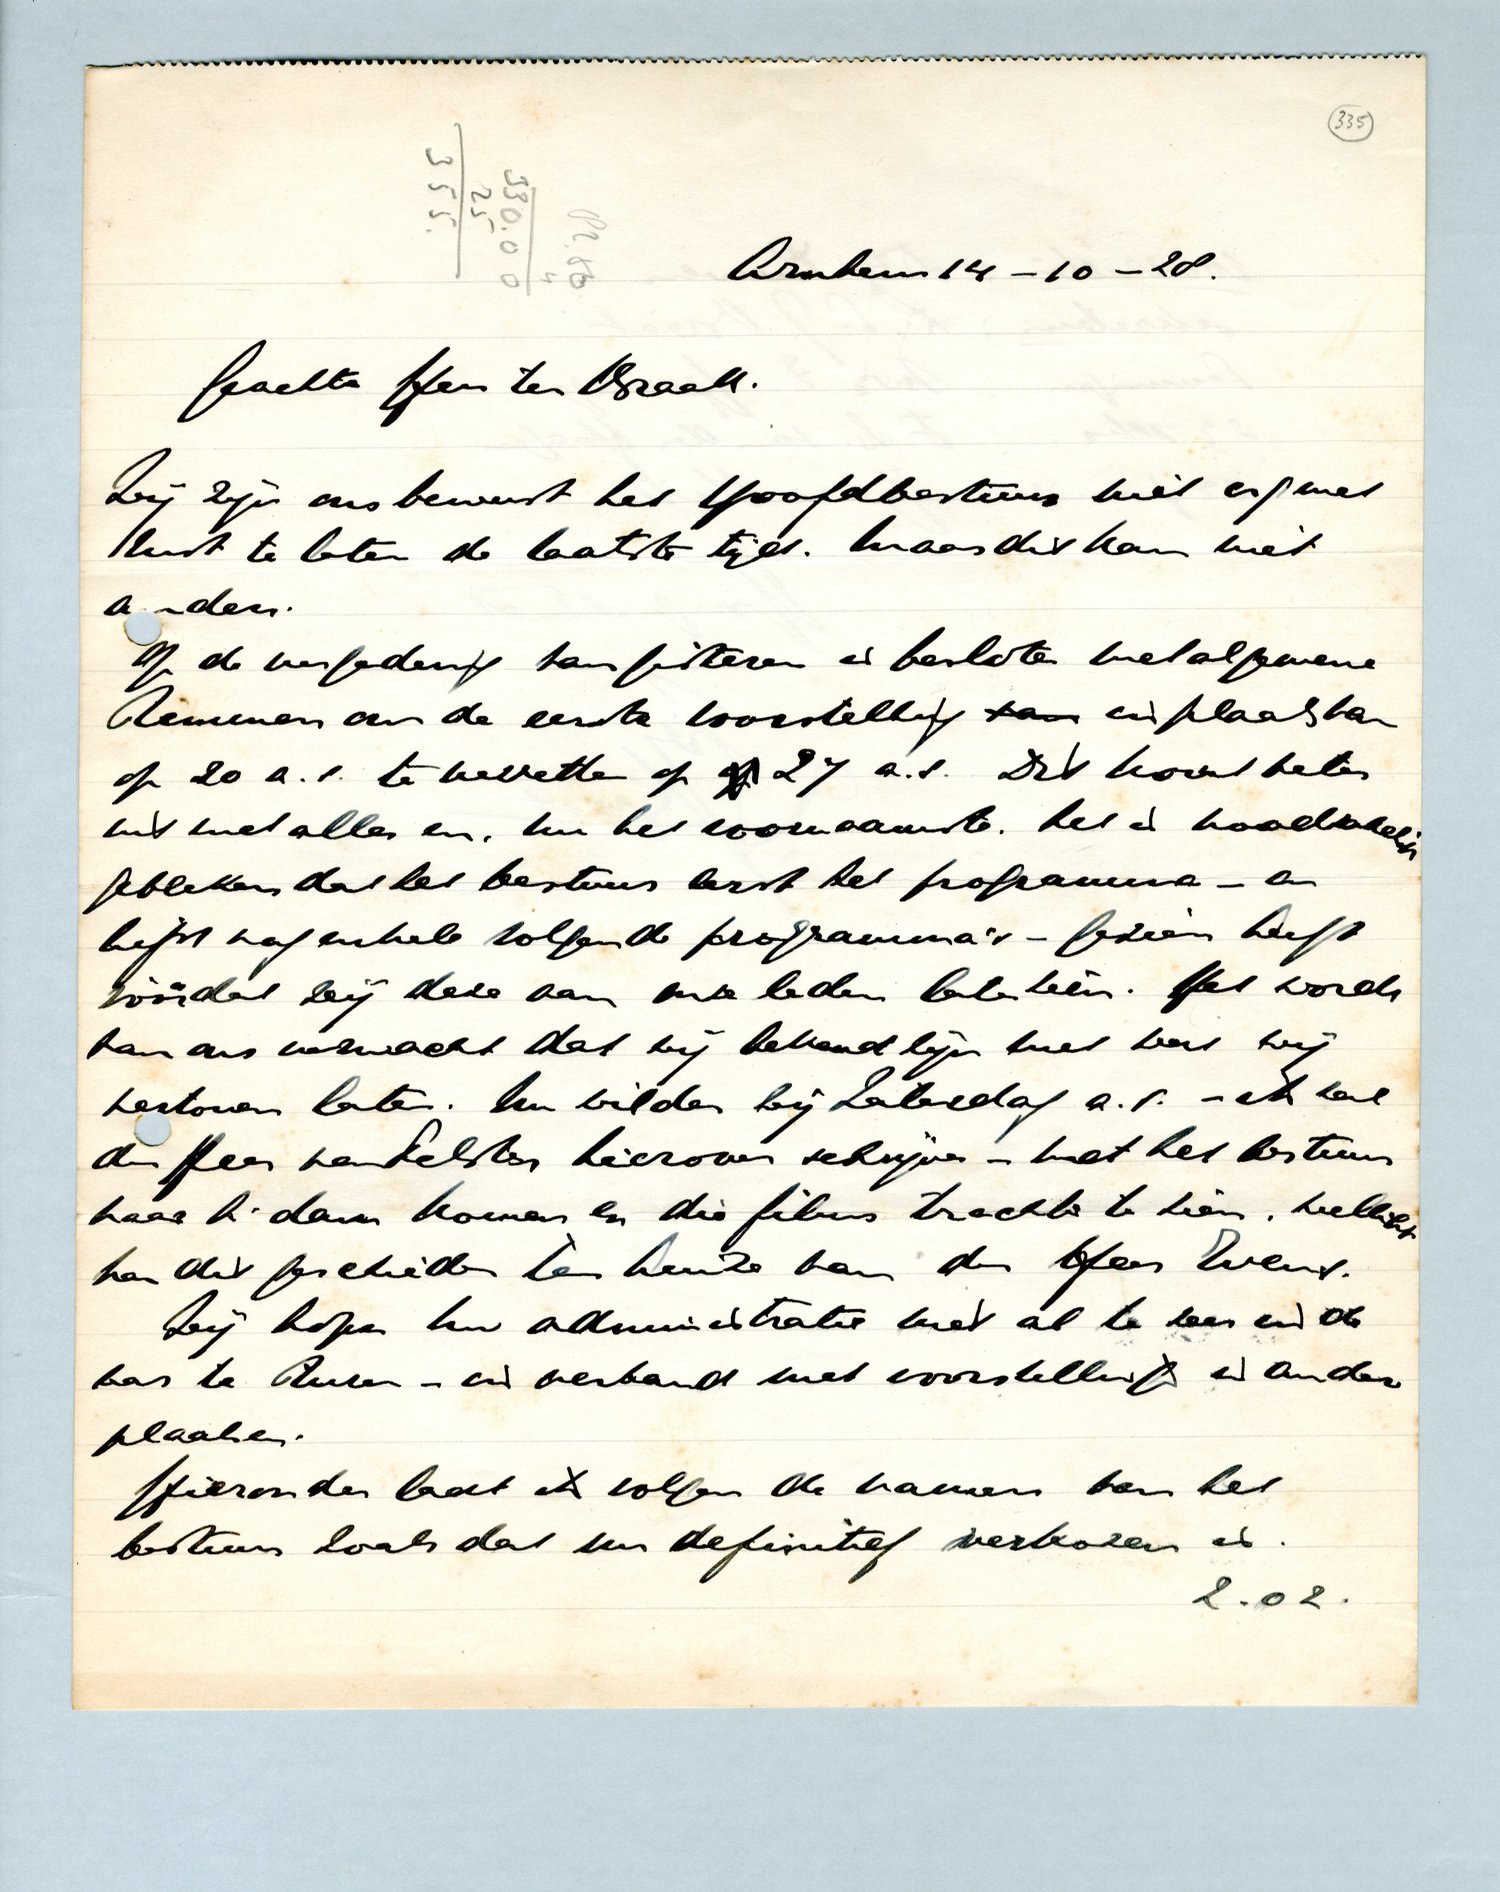 335
330.00
25
355.
Arnhem 14-10-28.
Geachte Heer ter Braak.
Wij zijn ons bewust het Hoofdbestuur niet erg met
rust te laten de laatste tijd. Maar dit kan niet
anders.
Op de vergadering van gisteren is besloten met algemene
stemmen om de eerste voorstelling van in plaats van
op 20 a.s. te verzetten op 27 a.s. Dit
met alles en. Nu het voornaamste. Het is noodzakelijk
gebleken dat het bestuur eerst het programma - en
liefst nog enkele volgende programma's - gezien heeft
vóórdat wij deze aan onze leden laten zien. Het wordt
van ons verwacht dat wij bekend zijn met wat wij
vertonen laten. Nu wilden wij Zaterdag a.s. - ik zal
den Heer hierover schrijven - met het bestuur
naar A'dam komen en die films trachten te zien. Wellicht
kan dit geschieden ten huize van den Heer Ivens.
Wij hopen Uw administratie niet al te zeer in de
war te sturen - in verband met voorstelling in andere
plaatsen.
Hieronder laat ik volgen de namen van het
bestuur zoals dat nu definitief verkozen is.
Z.O.Z.